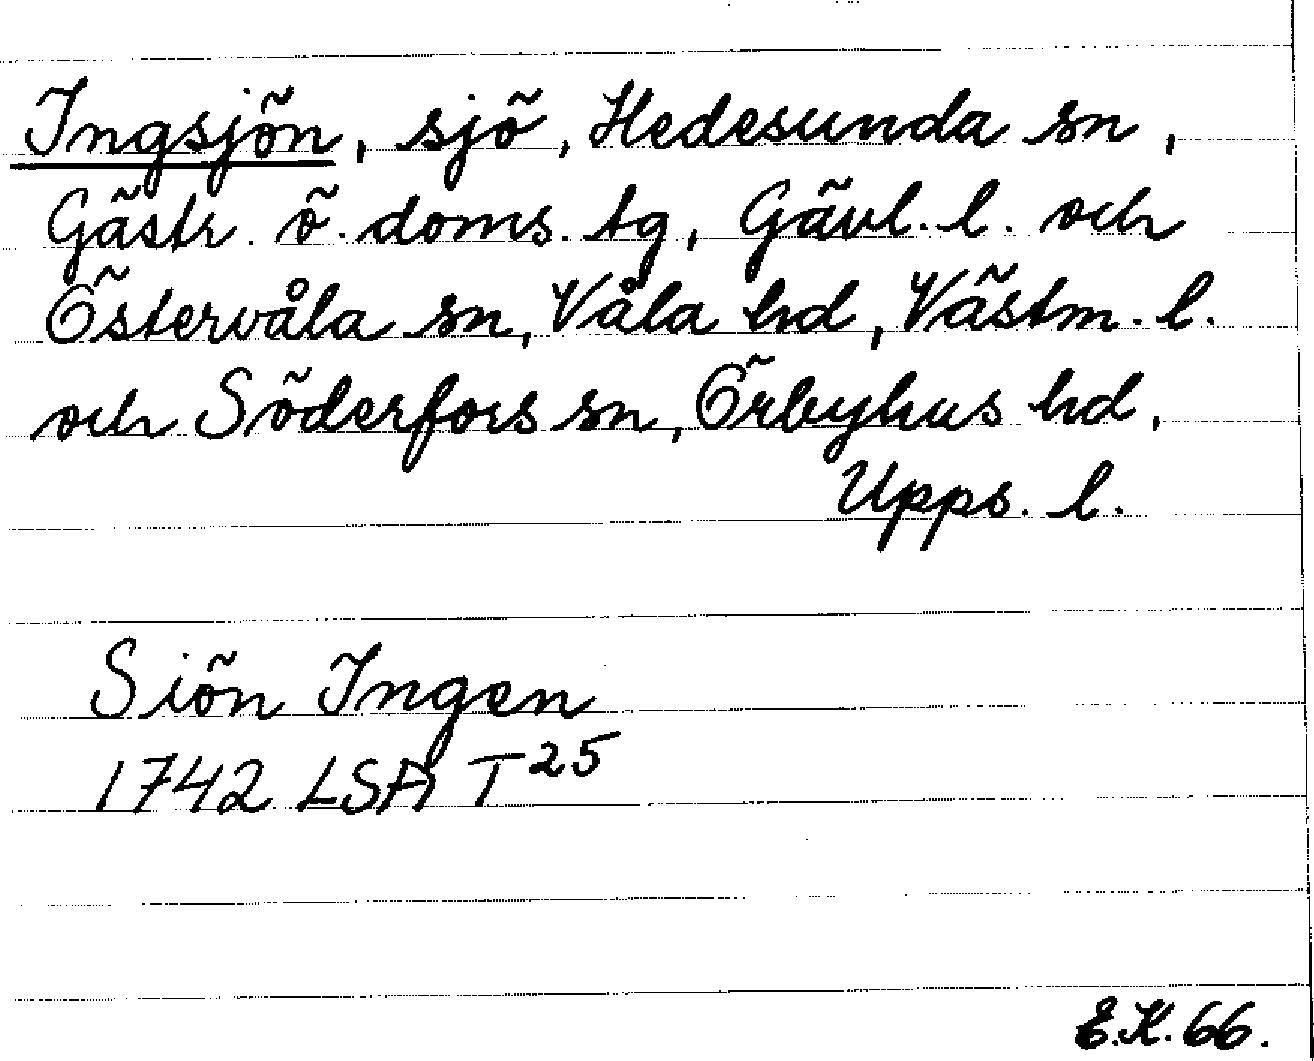 Ingsjön, sjö, Hedesunda sn,
Gästr. ö. doms. tg, Gävl. l. och
Östervåla sn, Våla hd, Västm. l.
och Söderfors sn, Örbyhus hd,
Upps. l.
Siön Ingen
1742 LSA T25
E.K. 66.